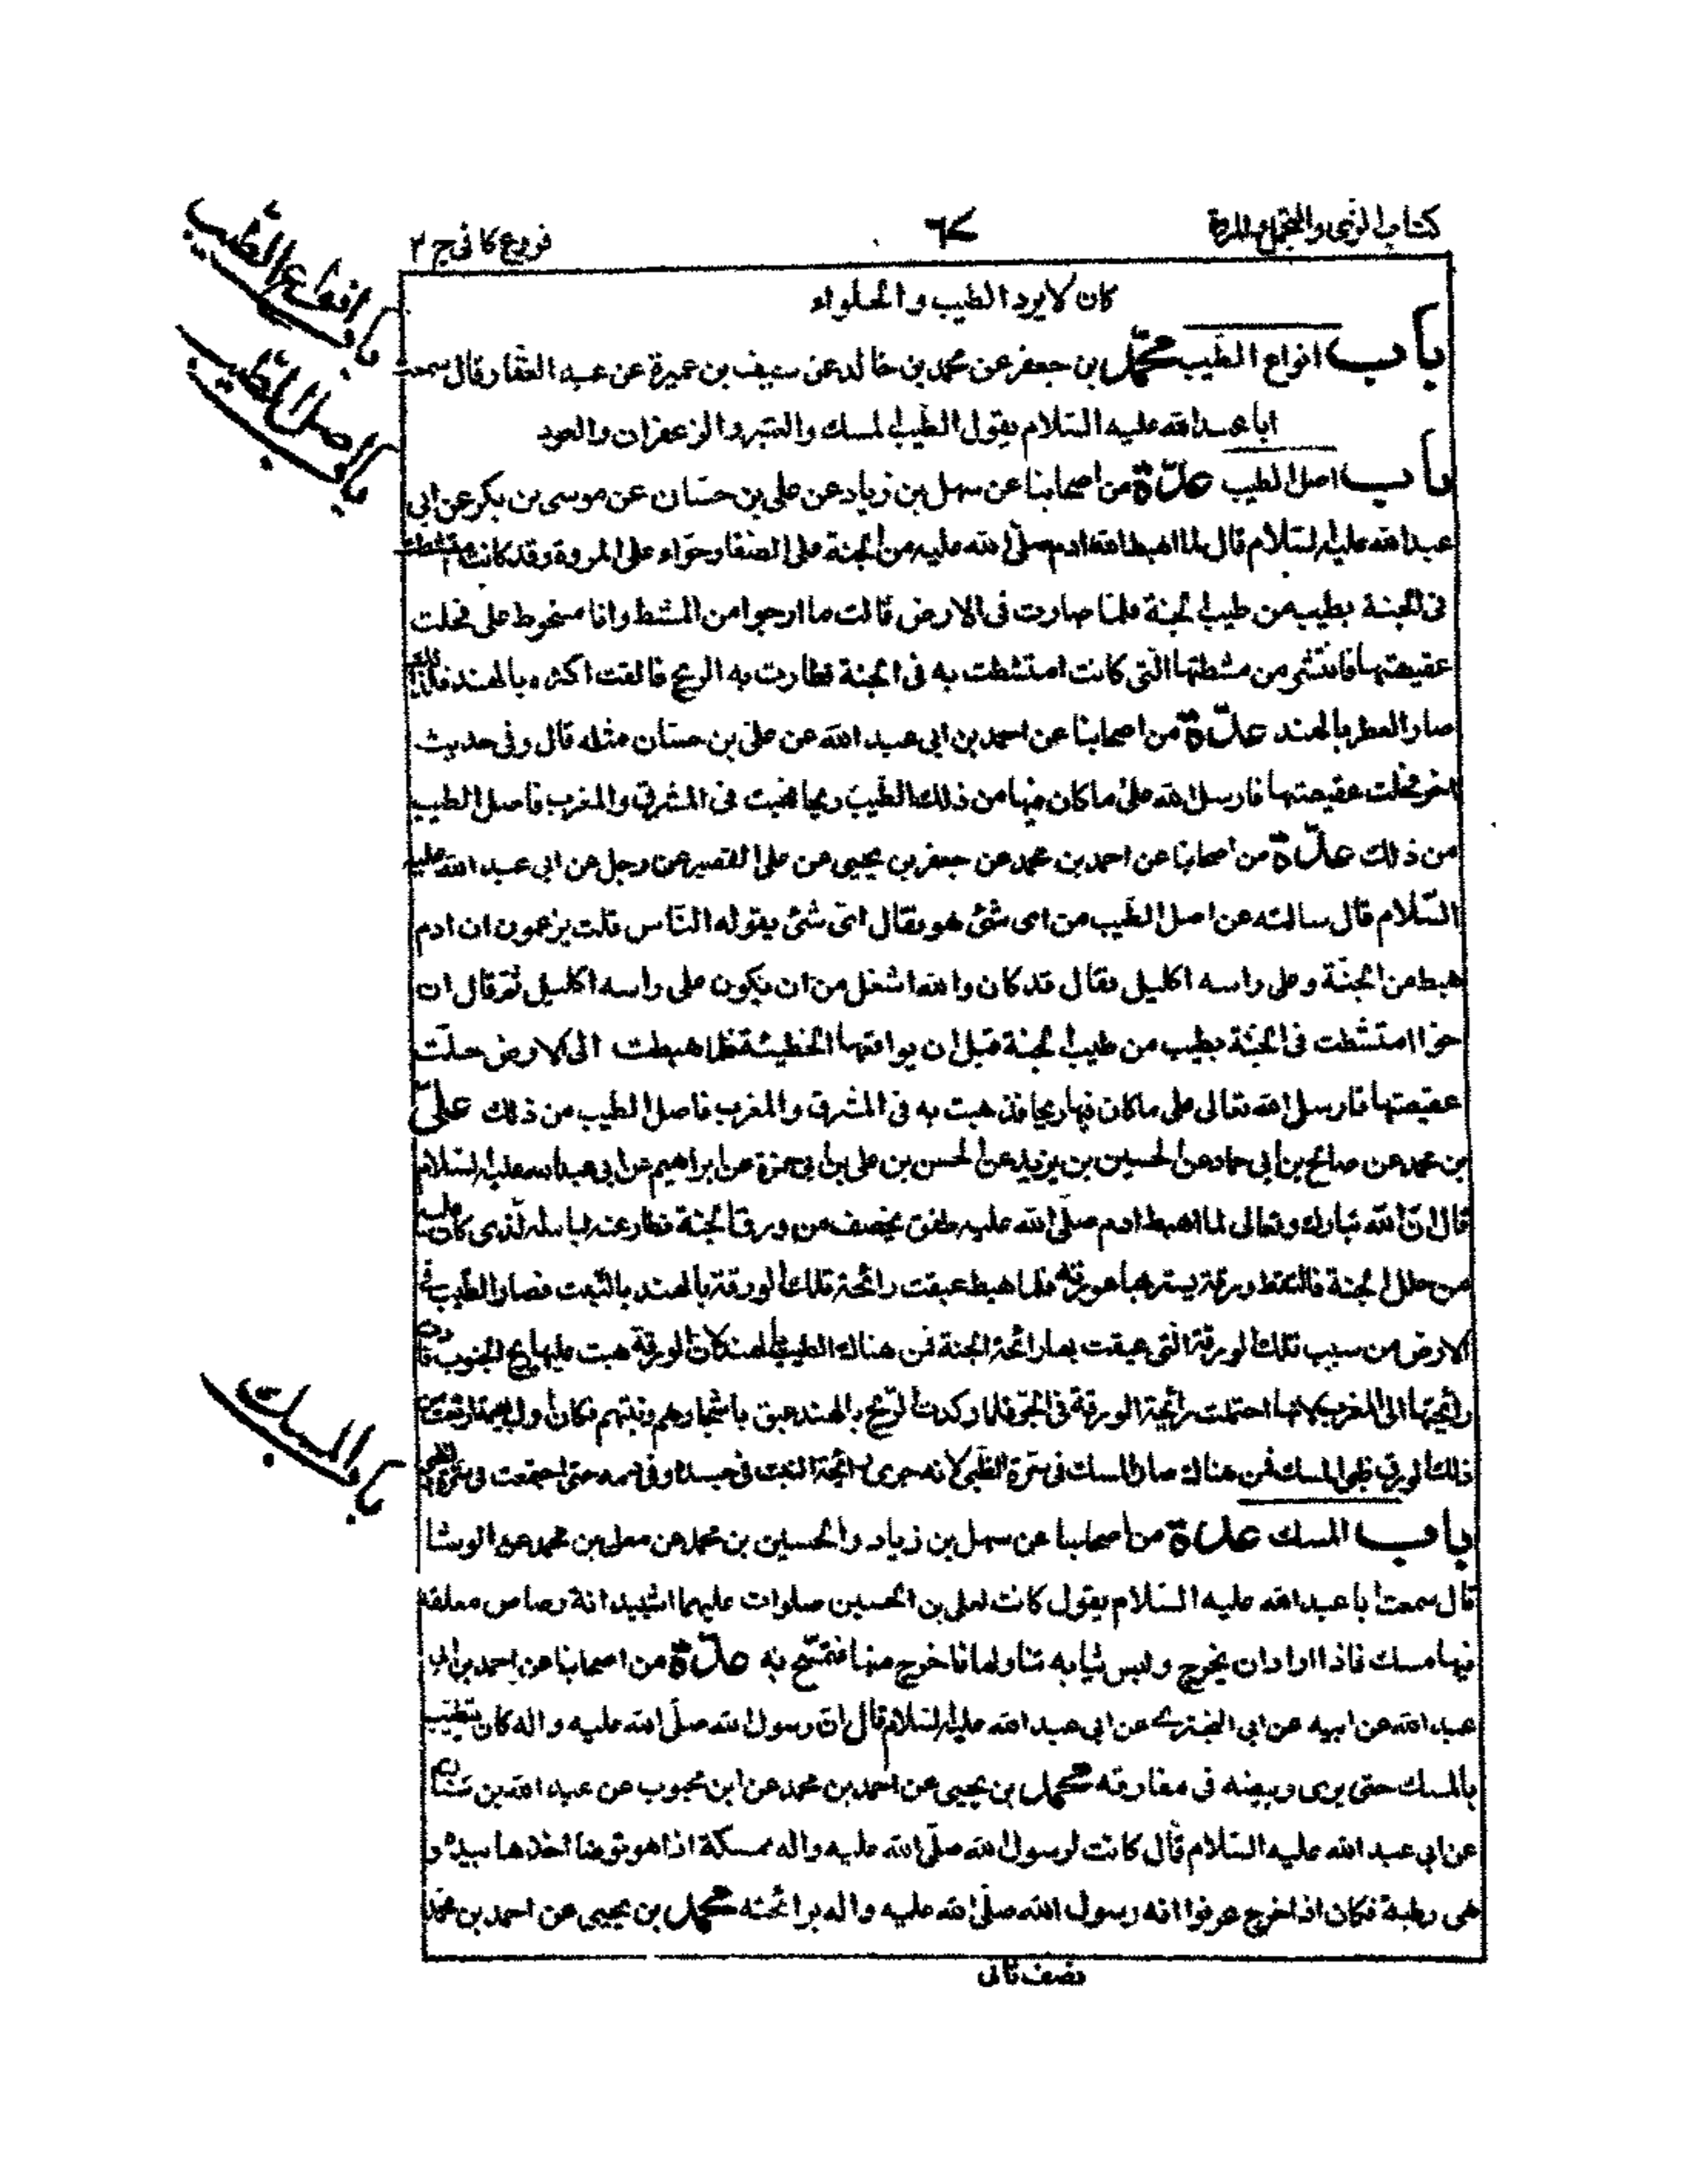 كتاب الزي والتجمل والمروة
٦٧
فروع كافى ج ٢
كان لا يرد الطيب والحلواء
باب انواع الطيب محمد بن جعفر عن محمد بن خالد عن سيف بن عميرة عن عبد الغفار قال سمعت
ابا عبد الله عليه السلام يقول الطيب المسك والعنبر والزعفران والعود
باب اصل الطيب عدة من اصحابنا عن سهل بن زياد عن على بن حسان عن موسى بن بكر عن ابى
عبد الله عليه السلام قال لما اهبط الله ادم صلى الله عليه من الجنة على الصفا وحواء على المروة وقد كانت امتشطت
فى الجنة بطيب من طيب الجنة فلما صارت فى الارض قالت ما ارجوا من المشط وانا مسخوط على فحلت
عقيصتها فانتثر من مشطتها التى كانت امتشطت به فى الجنة فطارت به الريح فالقت اكثره بالهند فلذلك
صار العطر بالهند عدة من اصحابنا عن احمد بن ابى عبد الله عن على بن حسان مثله قال وفى حديث
اخر فحلت عقيصتها فارسل الله على ما كان فيها من ذلك الطيب ريحا فهبت فى المشرق والمغرب فاصل الطيب
من ذلك عدة من اصحابنا عن احمد بن محمد عن جعفر بن يحيى عن على القصير عن رجل عن ابى عبد الله عليه
السلام قال سالته عن اصل الطيب من اى شئ هو فقال اى شئ يقوله الناس قلت يزعمون ان ادم
هبط من الجنة وعلى راسه اكليل فقال قد كان والله اشغل من ان يكون على راسه اكليل ثم قال ان
حوا امتشطت فى الجنة بطيب من طيب الجنة قبل ان يواقعها الخطيئة فلما هبطت الى الارض حلت
عقيصتها فارسل الله تعالى على ما كان فيها ريحا فذهبت به فى المشرق والمغرب فاصل الطيب من ذلك على
بن محمد عن صالح بن ابى حماد عن الحسين بن يزيد عن الحسن بن على بن ابى حمزة عن ابراهيم عن ابى عبد الله عليه السلام
قال ان الله تبارك وتعالى لما اهبط ادم صلى الله عليه طفق يخصف من ورق الجنة فطار عنه لباسه الذى كان عليه
من حلل الجنة فالتقط ورقة يستر بها عورته فلما هبط عبقت رائحة تلك الورقة بالهند بالنبت فصار الطيب فى
الارض من سبب تلك الورقة التى عبقت بها رائحة الجنة فمن هناك الطيب بالهند لان الورقة هبت عليها ريح الجنوب فادت
رائحتها الى المغرب لانها احتملت رائحة الورقة فى الجو فلما ركدت الريح بالهند عبق باشجارهم ونبتهم فكان اول بهيمة ارتعت من
ذلك الورق ظبى المسك فمن هناك صار المسك فى سرة الظبى لانه جرى رائحة النبت فى جسده وفى دمه حتى اجتمعت فى سرة الظبى
باب المسك عدة من اصحابنا عن سهل بن زياد والحسين بن محمد عن معلى بن محمد عن الوشا
قال سمعت ابا عبد الله عليه السلام يقول كانت لعلى بن الحسين صلوات عليهما اشبيدانة رصاص معلقة
فيها مسك فاذا اراد ان يخرج ولبس ثيابه تناولها فاخرج منها فتمسح به عدة من اصحابنا عن احمد بن ابى
عبد الله عن ابيه عن ابى البخترى عن ابى عبد الله عليه السلام قال ان رسول الله صلى الله عليه واله كان يتطيب
بالمسك حتى يرى وبيضه فى مفارقه محمد بن يحيى عن احمد بن محمد عن ابن محبوب عن عبد الله بن سنان
عن ابى عبد الله عليه السلام قال كانت لرسول الله صلى الله عليه واله ممسكة اذا هو توضا اخذها بيده و
هى رطبة فكان اذا خرج عرفوا انه رسول الله صلى الله عليه واله برائحته محمد بن يحيى عن احمد بن محمد
نصف ثانى
باب انواع الطيب
باب اصل الطيب
باب المسك